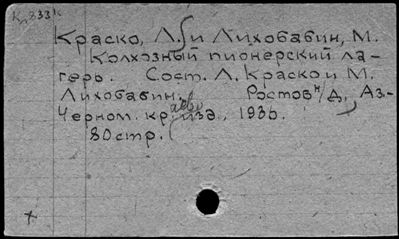 Кл833к
Краско, Л. и Лихобабин, М.
Колхозный пионерский ла-
герь. Сост. Л. Краско и М.
Лихобабин. Ростов н/Д, Аз-
Черном. кр. изд., 1936.
80 стр.